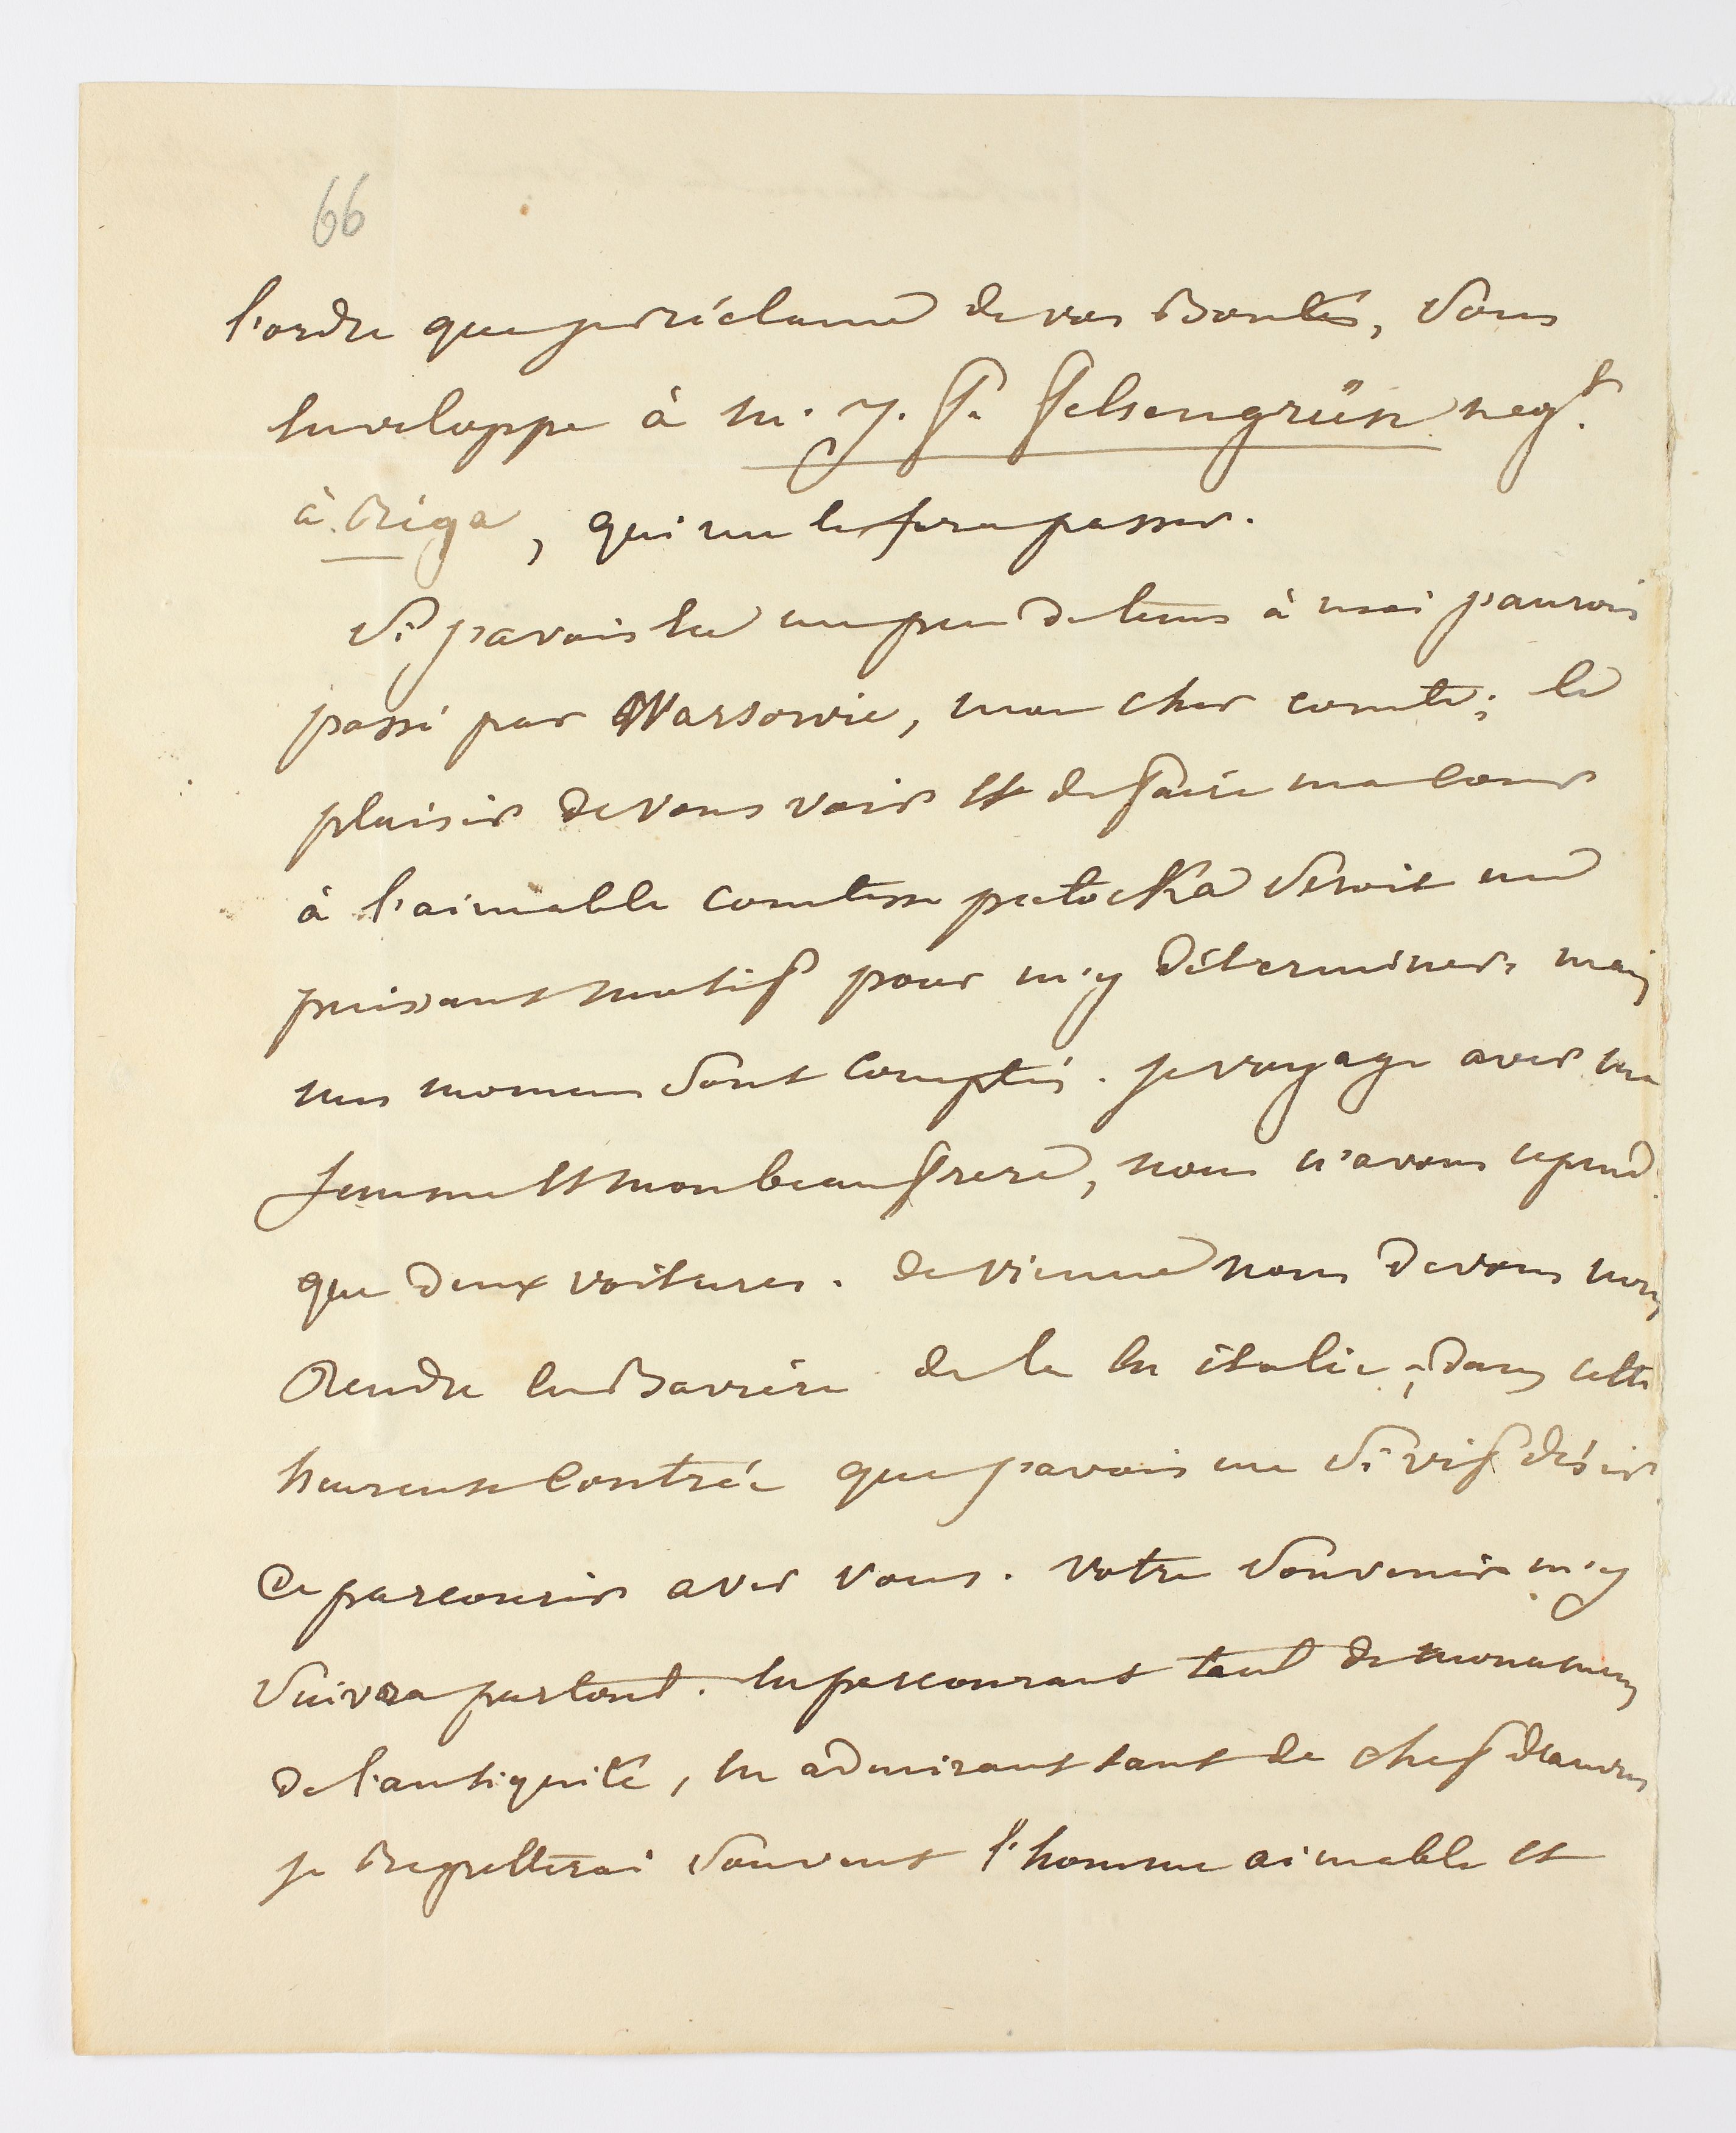 66
l'ordre que je réclame de vos Bontés, sous
enveloppe à m. J. F. Felsengrün neg.t
à Riga, qui me le fera passer.
Si j'avois eu un peu de tems à moi j'aurois
passé par Warsovie, mon cher comte; le
plaisir de vous voir et de faire ma cour
à l'aimable comtesse potocka seroit un
puissant motif pour m'y déterminer, mais
mes momens sont comptés. je voyage avec ma
femme et mon beau frere, nous n'avons cepend.
que deux voitures. de vienne nous devons nous
Rendre en Bavière de la en italie; dans cette
heureuse Contrée que j'avois un si vif désir
de parcourir avec vous. votre souvenir m'y
suivra partout. en parcourant tant de monumens
de l'antiquité, en admirant tant de chef d'œuvres
je Regretterai souvent l'homme aimable et